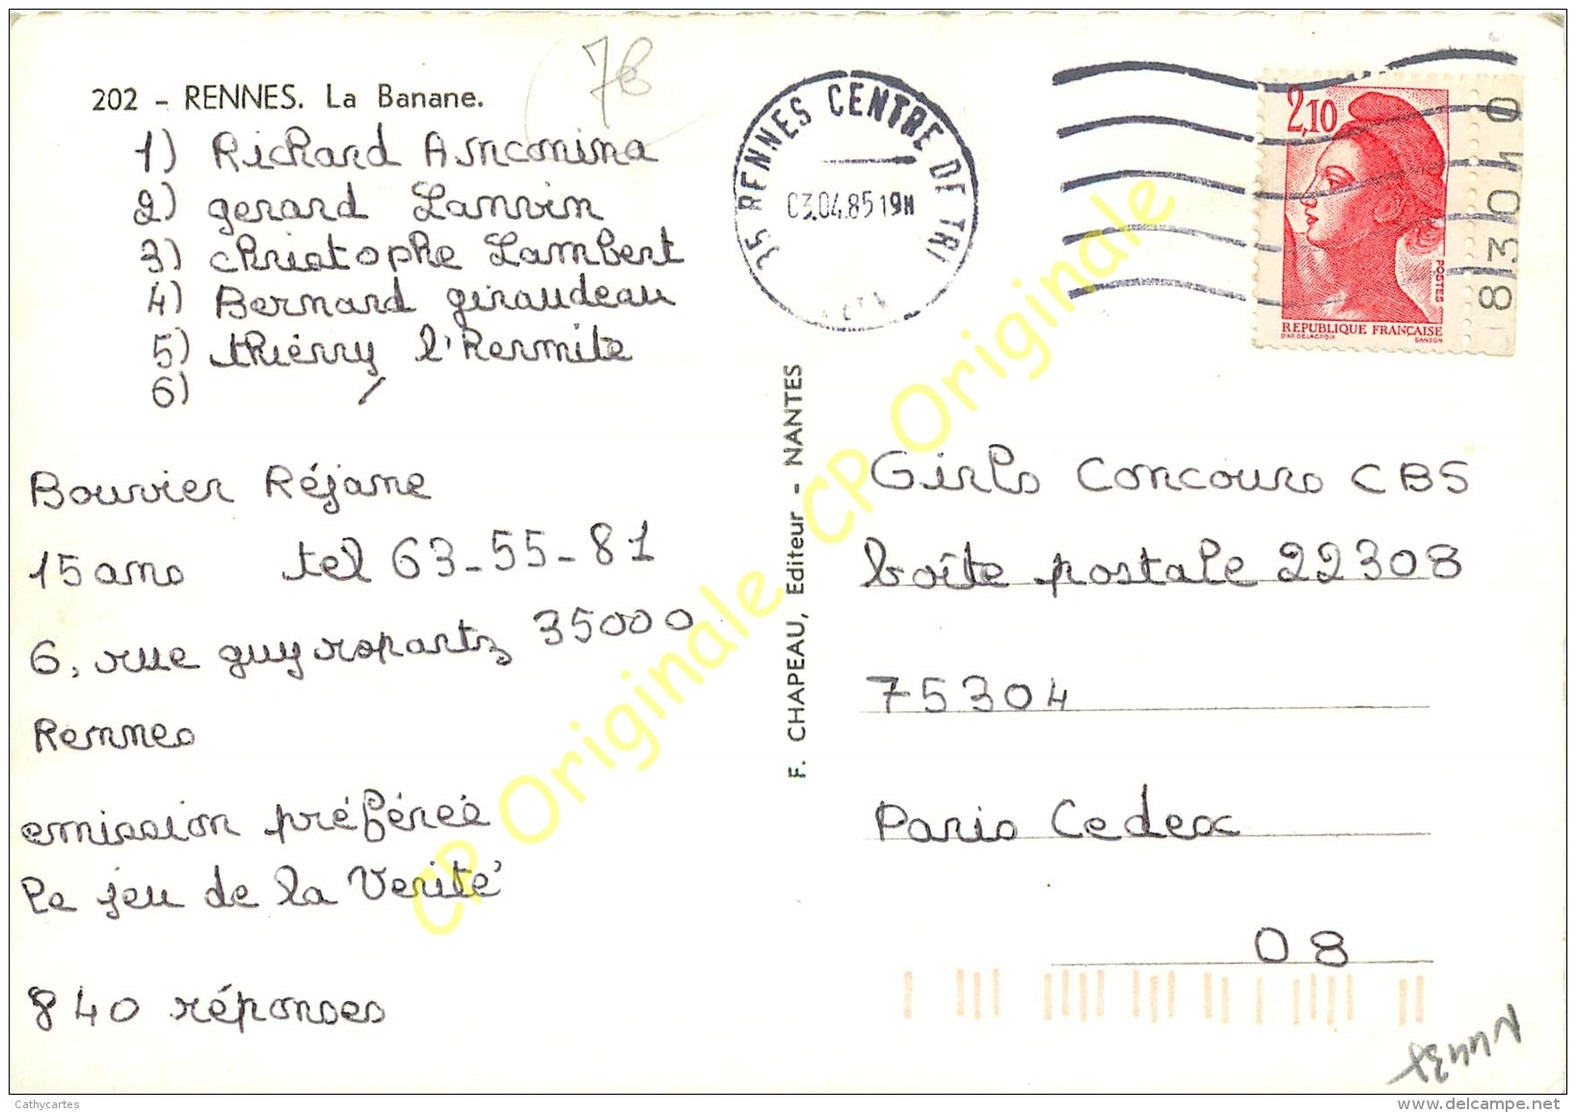 202 - RENNES. La Banane.
78
1) Richard Anconina
2) gerard Lanvin
3) christophe Lambert
4) Bernard giraudeau
5) thiérry l'hermite
6) /
Bouvier Réjane
15 ans tel 63-55-81
6, rue guy ropartz 35000
Rennes
emission préférée
le jeu de la Verité
840 réponses
F. CHAPEAU, Editeur - NANTES
35 RENNES CENTRE DE TRI
03.04.85 19H
2,10
POSTES
REPUBLIQUE FRANCAISE
D'AP. DELACROIX GANDON
Girls Concours CBS
boîte postale 22308
75304
Paris Cedex
08
CP Originale CP Originale CP Originale
Cathycartes
delcampe.net